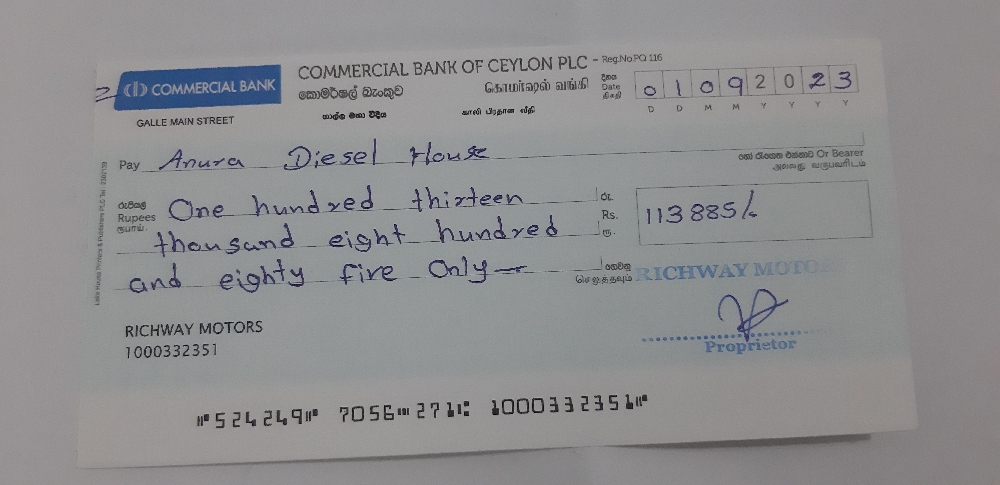 COMMERCIAL BANK OF CEYLON PLC - Reg.No.PQ 116
COMMERCIAL BANK
කොමර්ෂල් බැංකුව கொமர்ஷல் வங்கி
GALLE MAIN STREET
ගාල්ල මහා වීදිය காலி பிரதான வீதி
දිනය
Date
திகதி
0 1 0 9 2 0 2 3
D D M M Y Y Y Y
Pay Anura Diesel House
හෝ රැගෙන එන්නාට Or Bearer
அல்லது வருபவரிடம்
රුපියල්
Rupees
ரூபாய்
One hundred thirteen
thousand eight hundred
and eighty fire Only
රු.
Rs.
ரூ.
113885/-
ගෙවනු
செலுத்தவும்
RICHWAY MOTORS
Proprietor
RICHWAY MOTORS
1000332351
⑈524249⑈ 7056⑉271⑆ 1000332351⑈